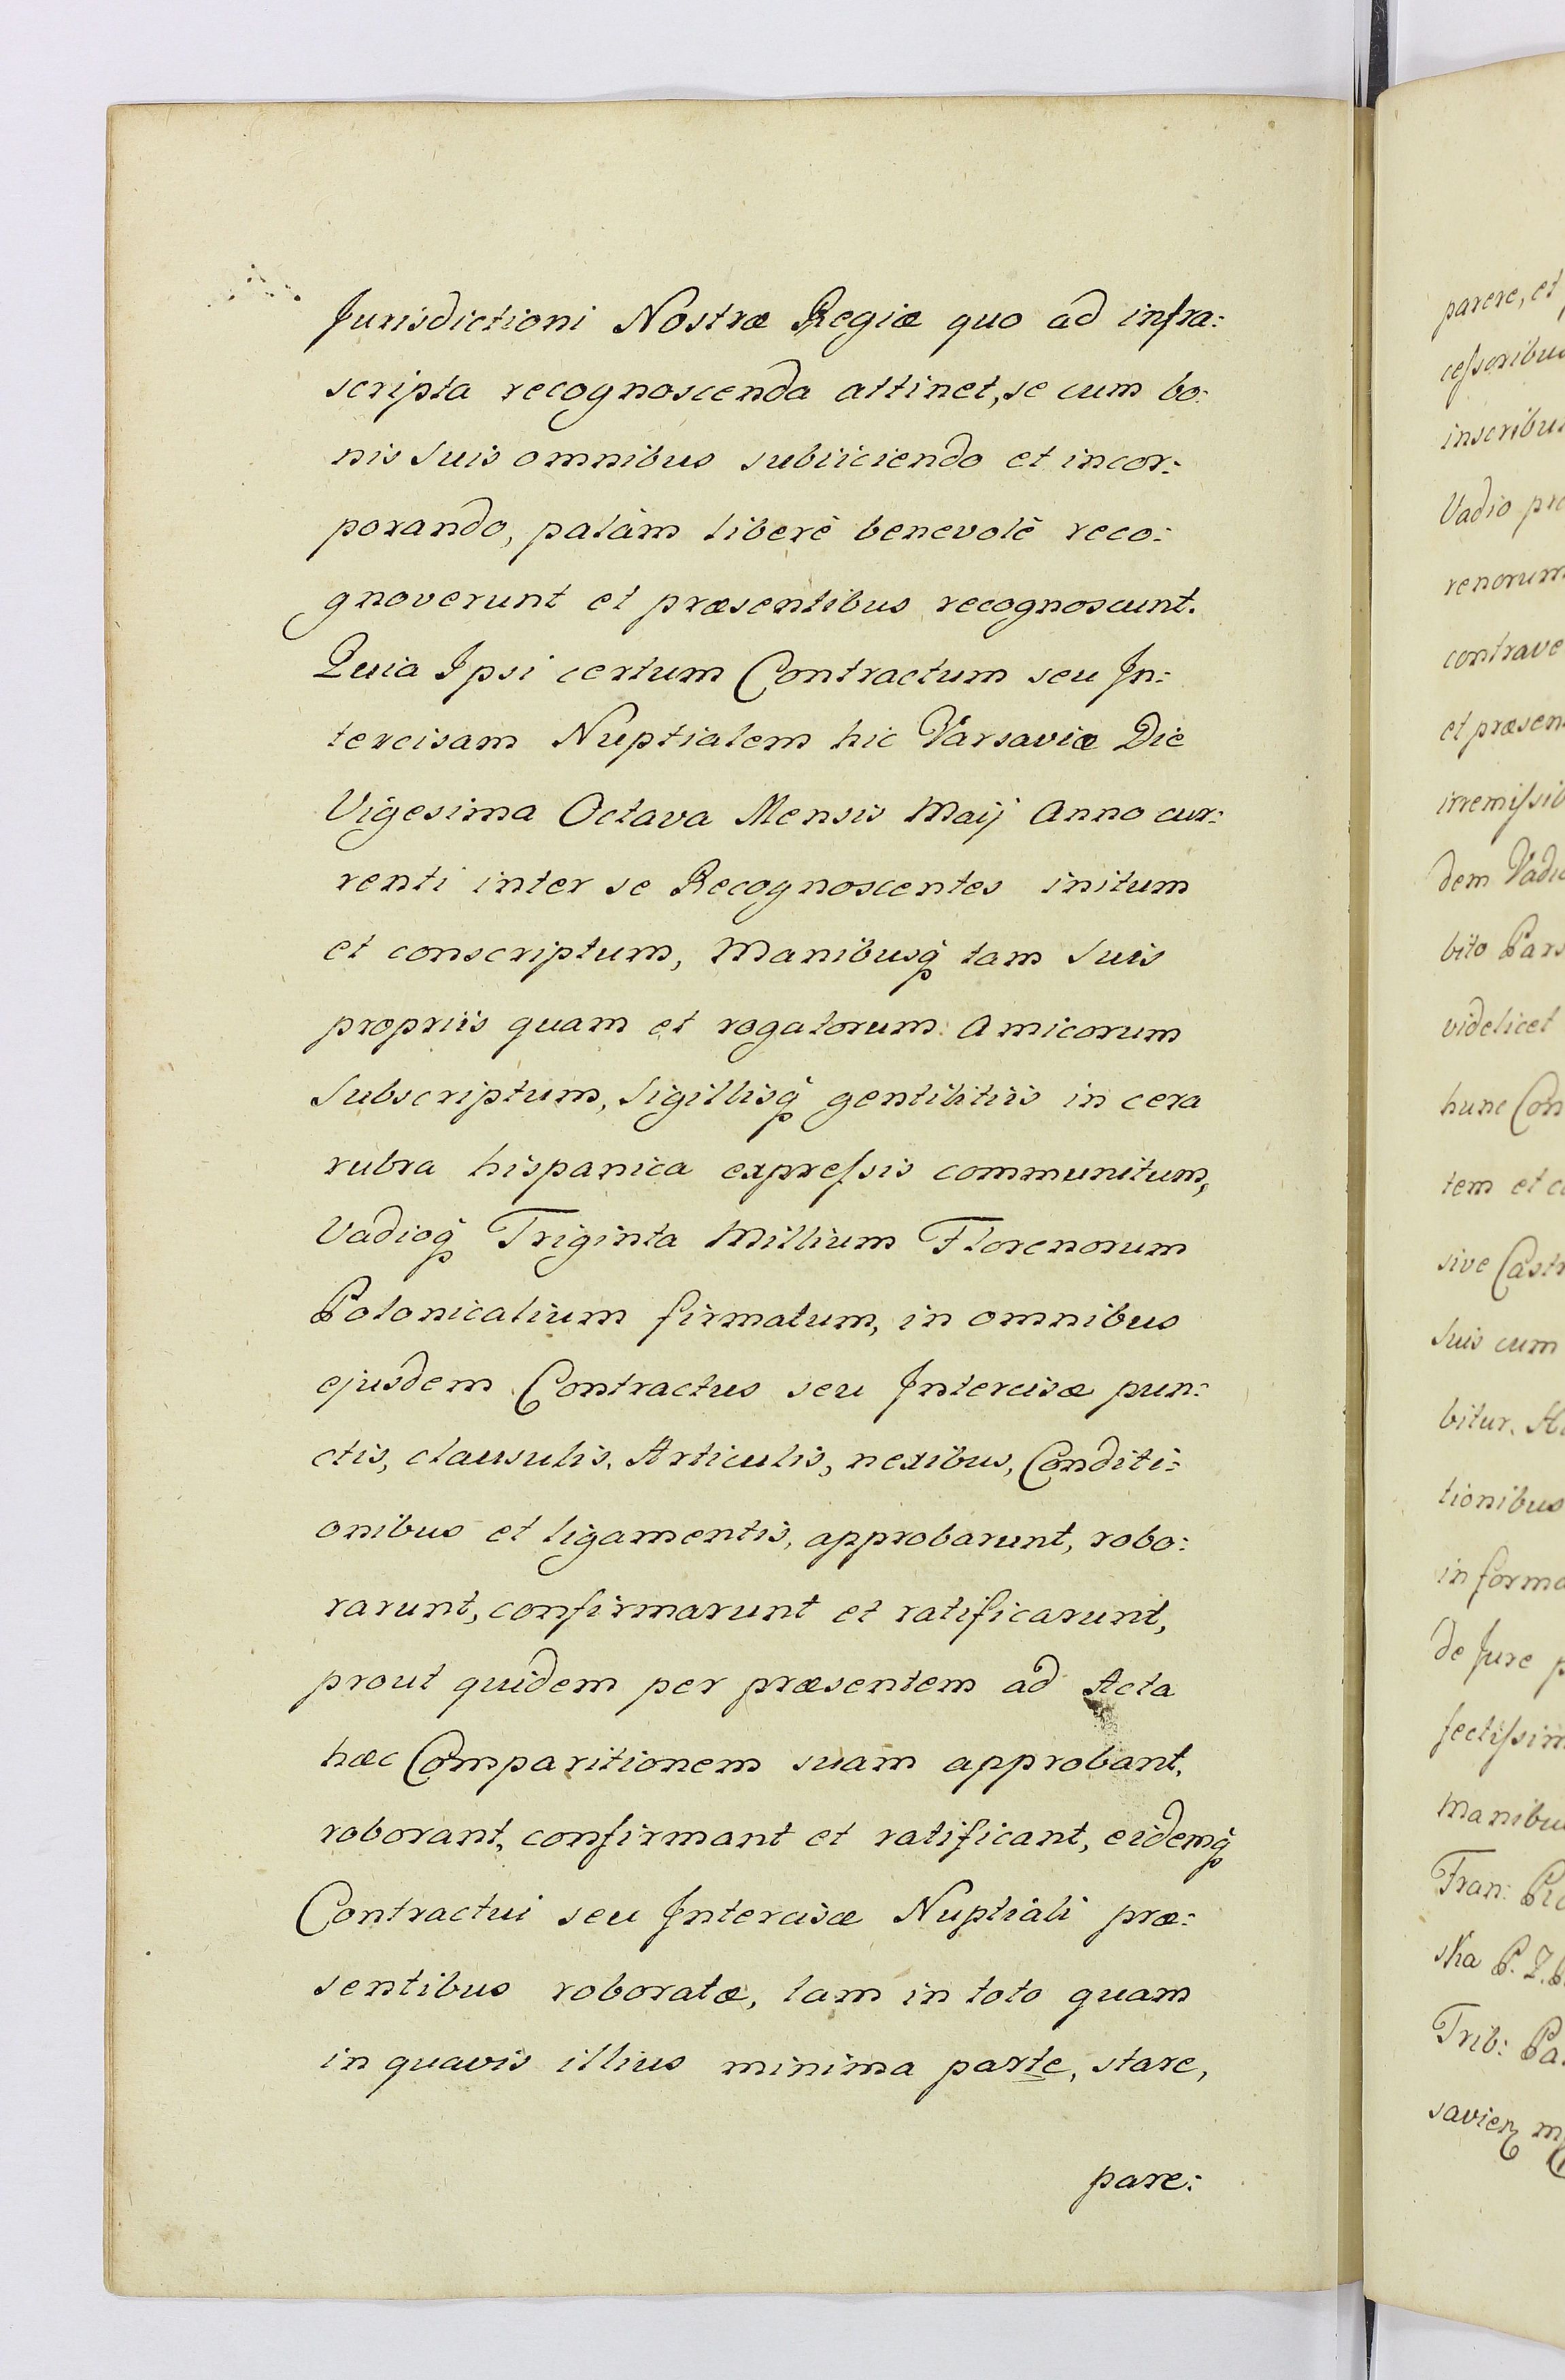 Jurisdictioni Nostræ Regiæ quo ad infra:
scripta recognoscenda attinet, se cum bo:
nis Suis omnibus subiiciendo et incor:
porando, palàm liberè benevolè reco:
gnoverunt et præsentibus recognoscunt.
Quia Ipsi certum Contractum seu In:
tercisam Nuptialem hic Varsaviæ Die
Vigesima Octava Mensis Maij Anno cur:
renti inter se Recognoscentes initum
et conscriptum, Manibusq̃ tam Suis
propriis quam et rogatorum Amicorum
Subscriptum, Sigillisq̃ gentilitiis in cera
rubra hispanica expreſsis communitum,
Vadioq̃ Triginta Millium Florenorum
Polonicalium firmatum, in omnibus
ejusdem Contractus seu Intercisæ pun:
ctis, clausulis, Articulis, nexibus, Conditi:
onibus et ligamentis, approbarunt, robo:
rarunt, confirmarunt et ratificarunt,
prout quidem per præsentem ad Acta
hæc Comparitionem suam approbant,
roborant, confirmant et ratificant, eidemq̃
Contractui seu Intercisæ Nuptiali præ:
sentibus roboratæ, tam in toto quam
in quavis illius minima parte, stare,
pare:
parere, et
ceſsoribus
inscribu
Vadio pro
renorum
contrave
et præsen
irremiſsib
dem Vadi
bito Pars
videlicet
hunc Con
tem et c
sive Castr
Suis cum
bitur. A
tionibus
in forma
de Jure p
fectiſsim
Manibu
Fran: Pi
ska P. Z.
Trib: Pa
savien m